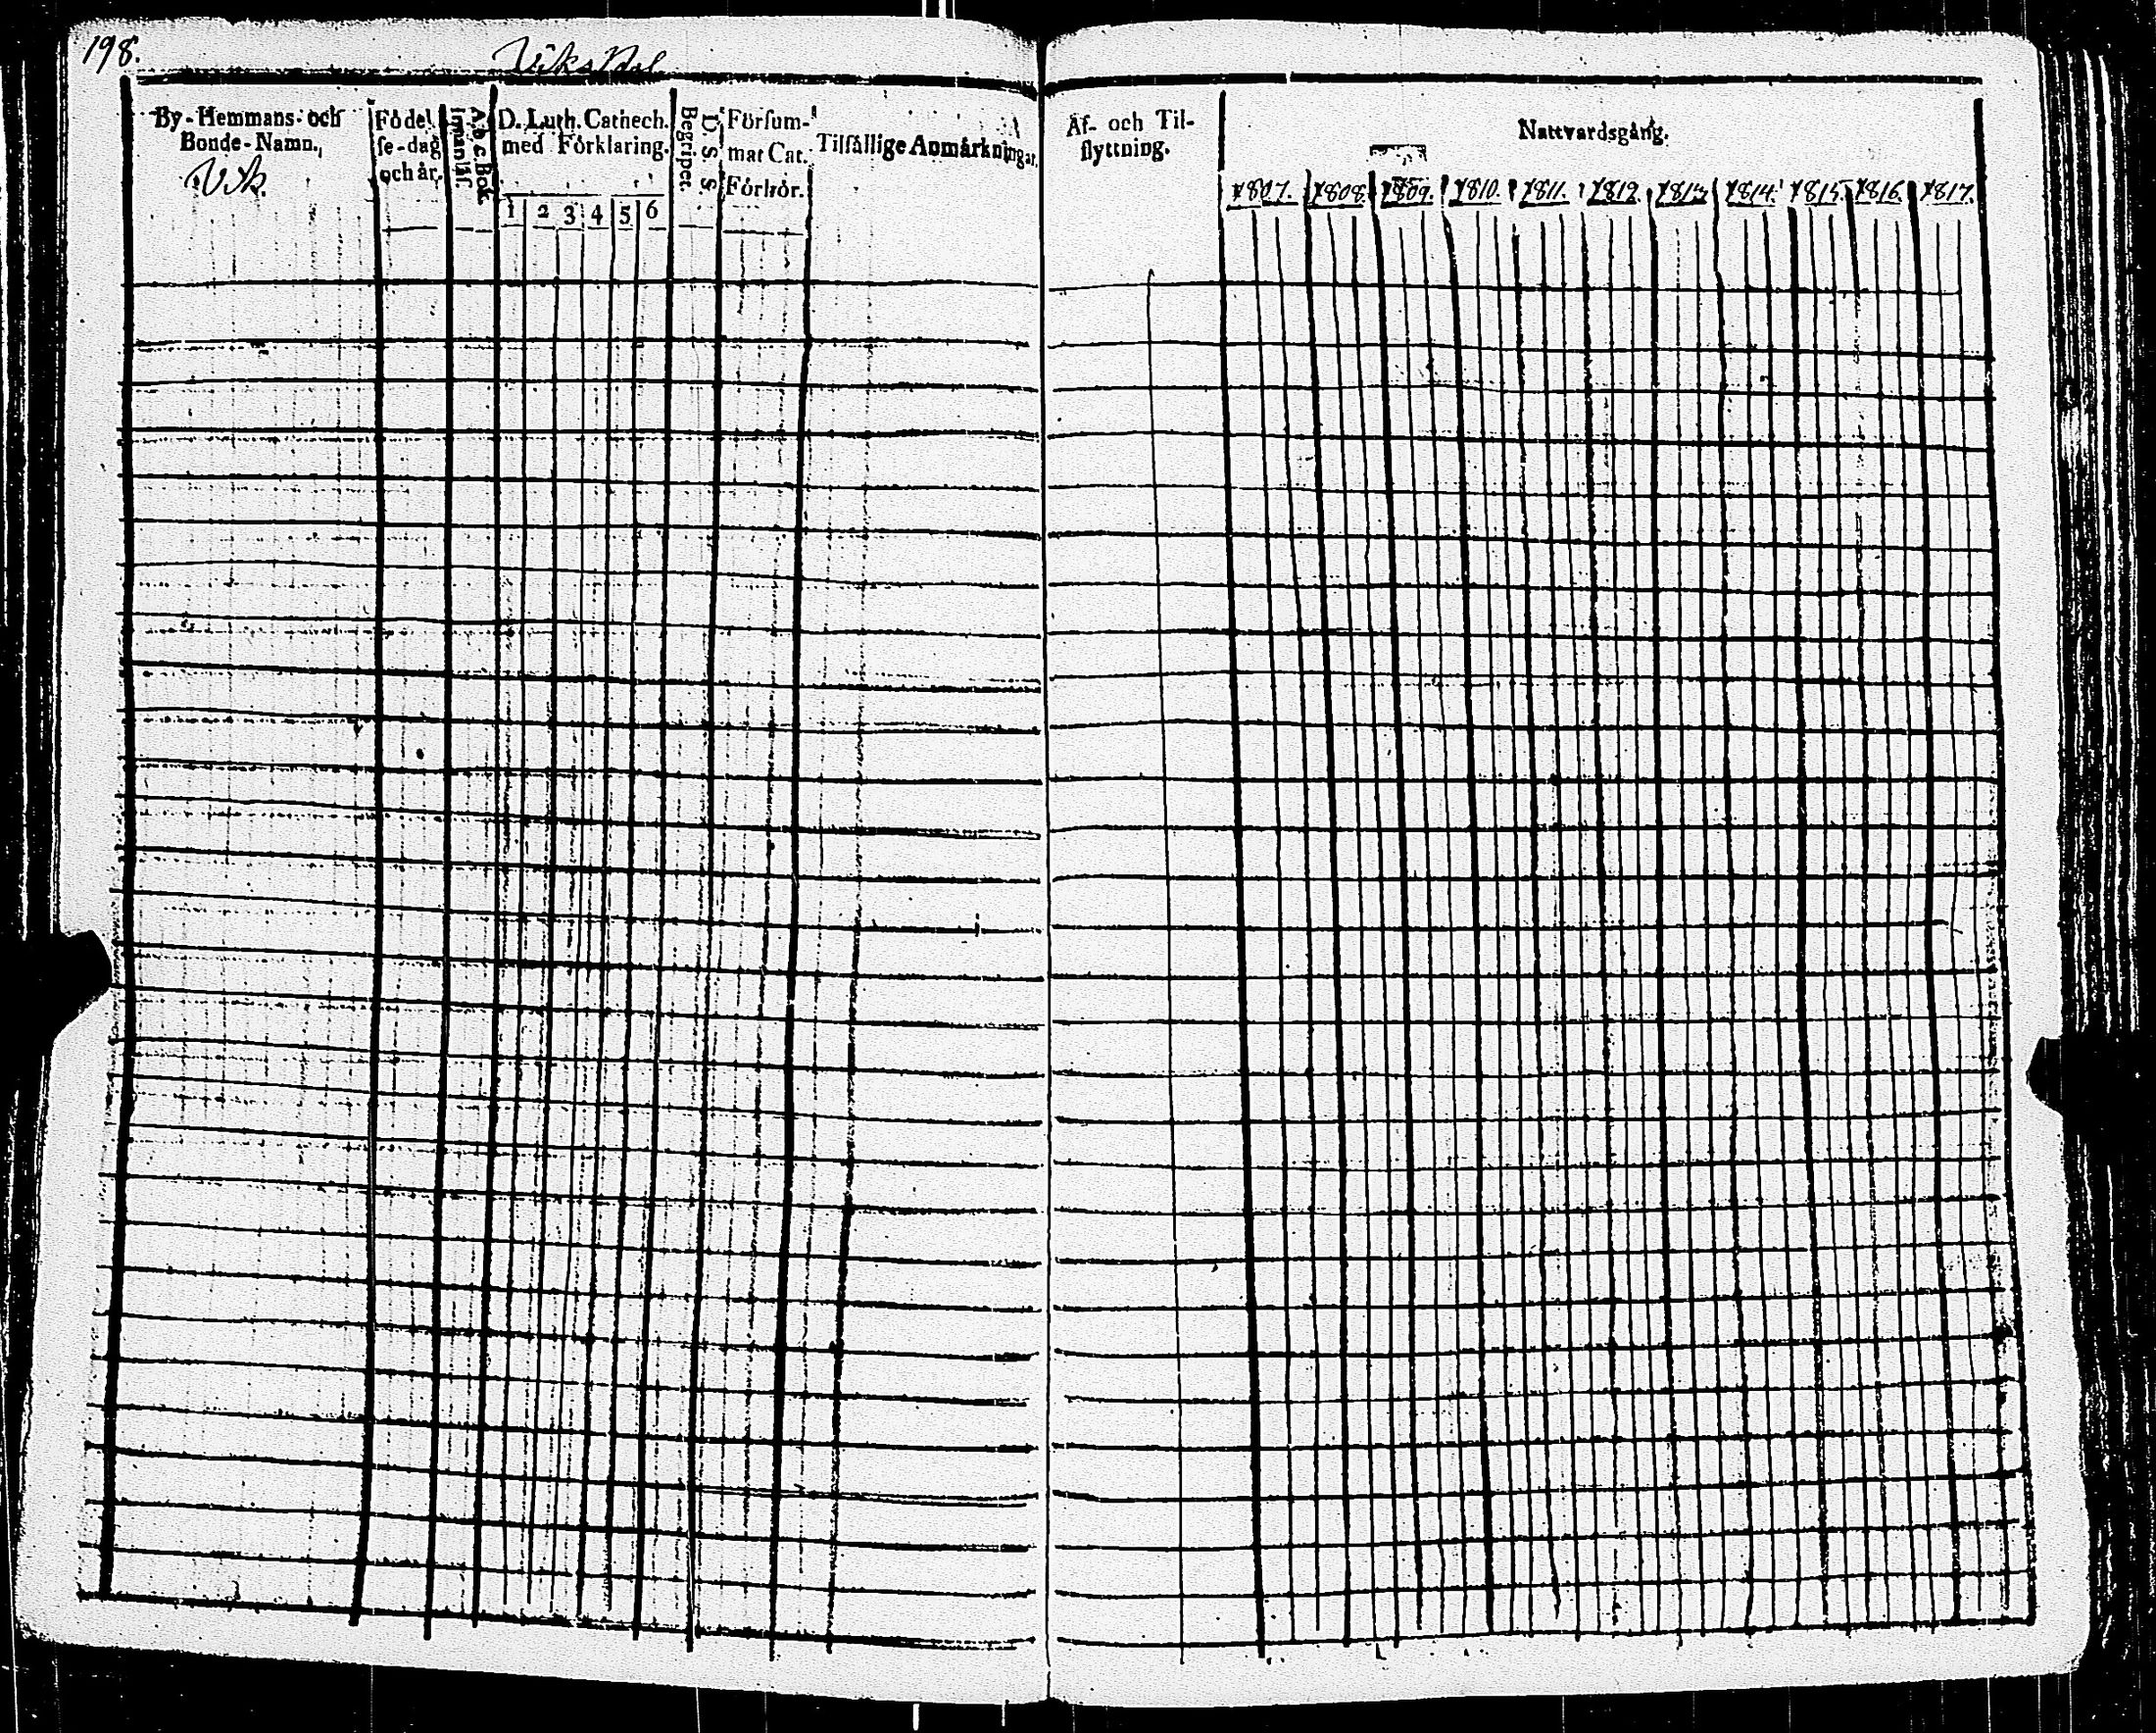 198.
Viks Del
By-Hemmans- och
Bonde-Namn.
Vik.
Födel
se-dag
och år.
A.b.c. Bok.
Innanläs.
D. Luth. Cathech.
med Förklaring.
1 2 3 4 5 6
Begriper.
D S S
Försum-
mat Cat.
Förhör.
Tilfällige Anmärkningar.
Af- och Til-
flyttning.
Nattvardsgång.
1807. 1808. 1809. 1810. 1811. 1812. 1813 1814. 1815. 1816. 1817.